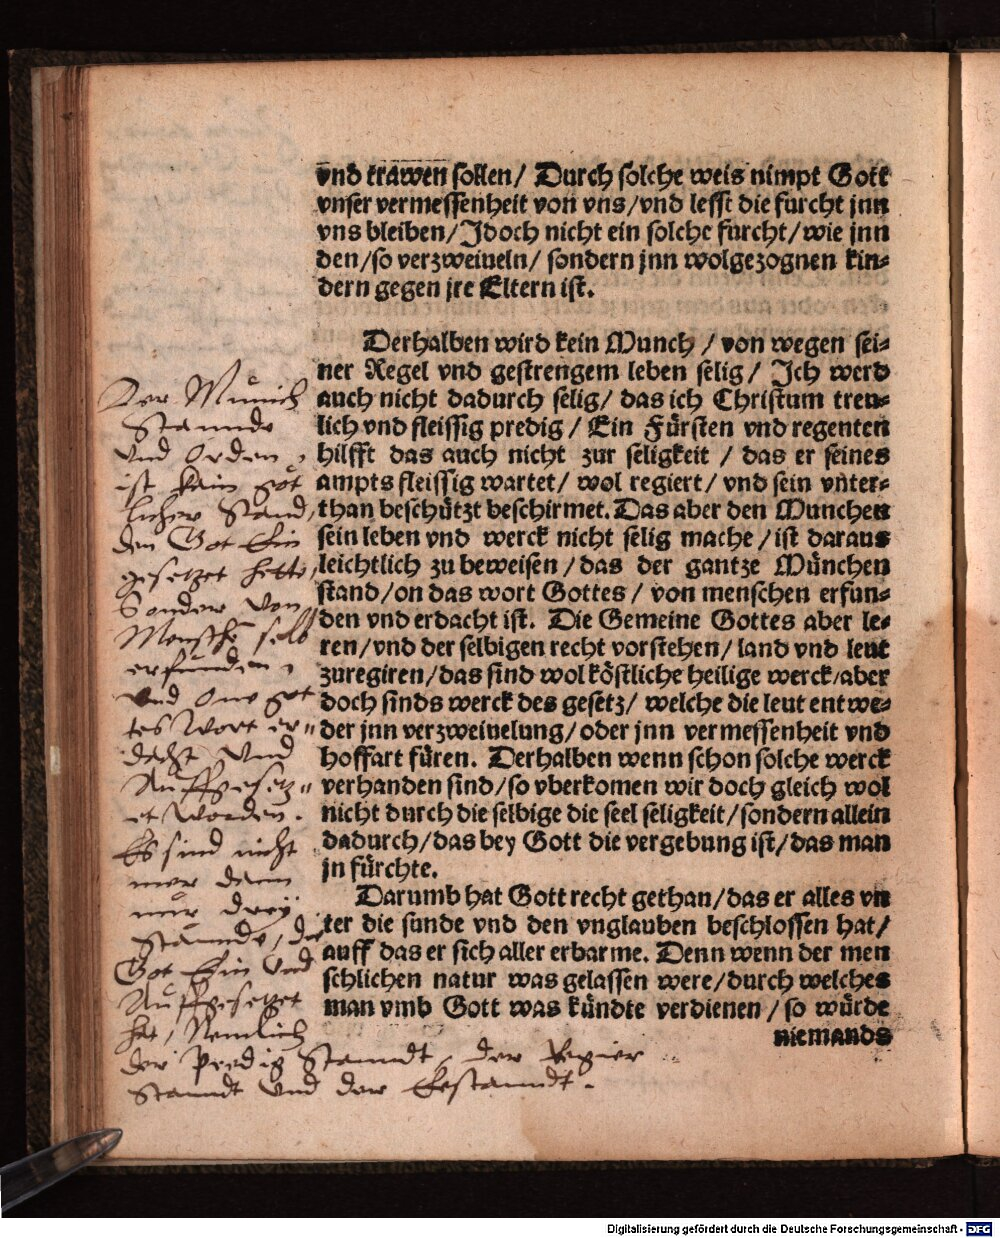 vnd trawen sollen/ Durch solche weis nimpt Gott
vnser vermessenheit von vns/vnd lesst die furcht jnn
vns bleiben/Jdoch nicht ein solche furcht/wie jnn
den/so verzweiueln/ sondern jnn wolgezognen kin-
dern gegen jre Eltern ist.
Derhalben wird kein Munch/von wegen sei-
ner Regel vnd gestrengem leben selig/ Jch werd
auch nicht dadurch selig/ das ich Christum treu-
lich vnd fleissig predig/ Ein Fürsten vnd regenten
hilfft das auch nicht zur seligkeit/ das er seines
ampts fleissig wartet/ wol regiert/ vnd sein vnter-
than beschützt beschirmet. Das aber den Munchen
sein leben vnd werck nicht selig mache/ist daraus
leichtlich zu beweisen/das der gantze München
stand/on das wort Gottes/ von menschen erfun-
den vnd erdacht ist. Die Gemeine Gottes aber le-
ren/vnd der selbigen recht vorstehen/ land vnd leut
zuregiren/das sind wol köstliche heilige werck/aber
doch sinds werck des gesetz/ welche die leut entwe-
der jnn verzweiuelung/oder jnn vermessenheit vnd
hoffart füren. Derhalben wenn schon solche werck
verhanden sind/so vberkomen wir doch gleich wol
nicht durch die selbige die seel seligkeit/sondern allein
dadurch/das bey Gott die vergebung ist/das man
jn fürchte.
Darumb hat Gott recht gethan/das er alles vn
ter die sunde vnd den vnglauben beschlossen hat/
auff das er sich aller erbarme. Denn wenn der men
schlichen natur was gelassen were/durch welches
man vmb Gott was kündte verdienen/so würde
niemands
Der Munich
Stannde
Vnd Orden,
ist kain göt
licher Stand,
den Got Ein
gesetzet hette,
Sonder Von
Mensche selb
erfunden,
Vnd One got
tes Wort er"
dacht Vnd
Auffgesetz"
et Worden.
Es sind nicht
mer dann
nur Drey
Stannde, die
Got Ein Vnd
Auffgesetzet
hat, Nemlich
der Predig Stanndt, der Regier
Stanndt Vnd der Eestanndt.
Digitalisierung gefördert durch die Deutsche Forschungsgemeinschaft - DFG